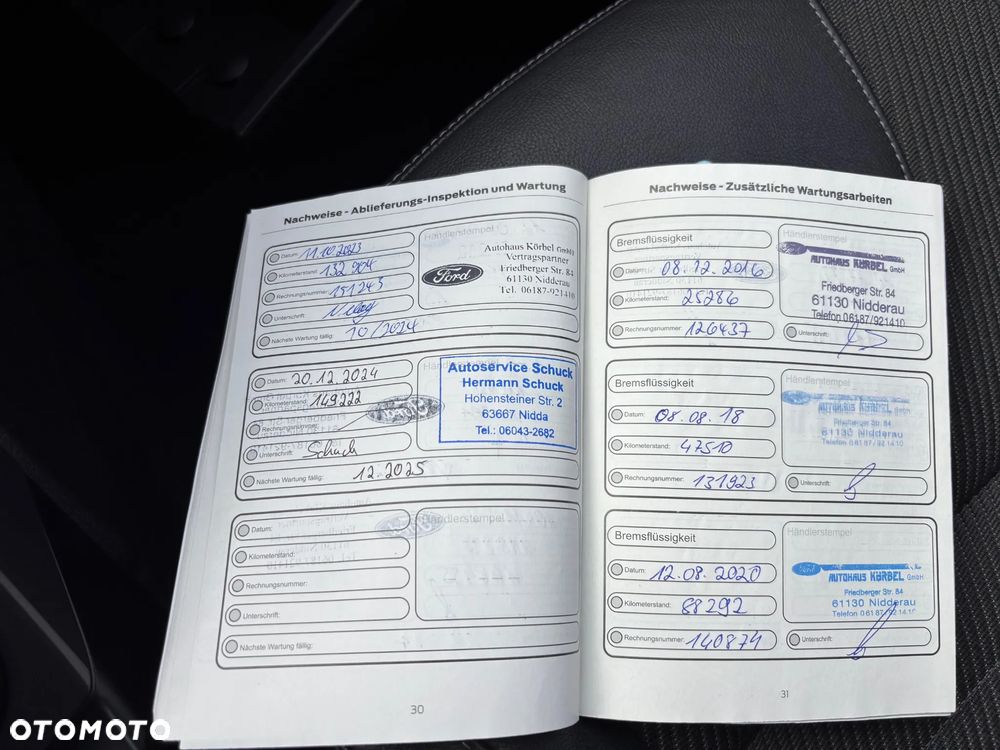 Nachweise - Ablieferungs-Inspektion und Wartung
Datum: 11.10.2023
Kilometerstand: 132 904
Rechnungsnummer: 151243
Unterschrift:
Nächste Wartung fällig: 10/2024
Händlerstempel
Autohaus Körbel GmbH
Vertragspartner
Friedberger Str. 84
61130 Nidderau
Tel. 06187-921410
Ford
Datum: 20.12.2024
Kilometerstand: 149222
Rechnungsnummer:
Unterschrift: Schuck
Nächste Wartung fällig: 12.2025
Autoservice Schuck
Hermann Schuck
Hohensteiner Str. 2
63667 Nidda
Tel.: 06043-2682
Datum:
Kilometerstand:
Rechnungsnummer:
Unterschrift:
Nächste Wartung fällig:
Händlerstempel
30
Nachweise - Zusätzliche Wartungsarbeiten
Bremsflüssigkeit
Datum: 08.12.2016
Kilometerstand: 25286
Rechnungsnummer: 126437
Händlerstempel
AUTOHAUS KÖRBEL GmbH
Friedberger Str. 84
61130 Nidderau
Telefon 06187/921410
Unterschrift:
Bremsflüssigkeit
Datum: 08.08.18
Kilometerstand: 47510
Rechnungsnummer: 131923
Händlerstempel
AUTOHAUS KÖRBEL GmbH
Friedberger Str. 84
61130 Nidderau
Telefon 06187/921410
Unterschrift:
Bremsflüssigkeit
Datum: 12.08.2020
Kilometerstand: 88292
Rechnungsnummer: 140871
Händlerstempel
Ford
AUTOHAUS KÖRBEL GmbH
Friedberger Str. 84
61130 Nidderau
Telefon 06187/921410
Unterschrift:
31
OTOMOTO